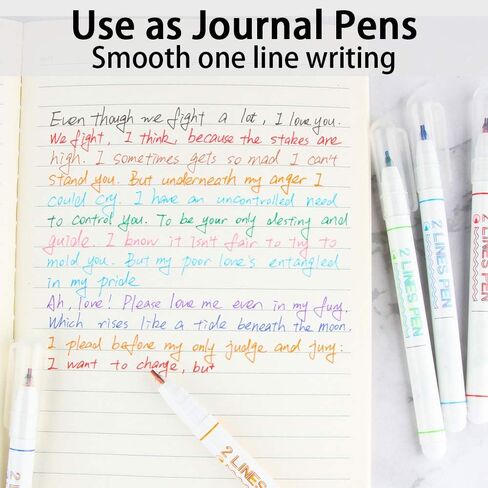 Use as Journal Pens
Smooth one line writing
Even though we fight a lot, I love you.
We fight, I think, because the stakes are
high. I sometimes gets so mad I can't
stand you. But underneath my anger I
could cry. I have an uncontrolled need
to control you. To be your only destiny and
guide. I know it isn't fair to try to
mold you. But my poor love's entangled
in my pride
Ah, love! Please love me even in my fury.
Which rises like a tide beneath the moon.
I plead before my only judge and jury:
I want to change, but
2 LINES PEN
2 LINES PEN
2 LINES PEN
2 LINES
2 LINES